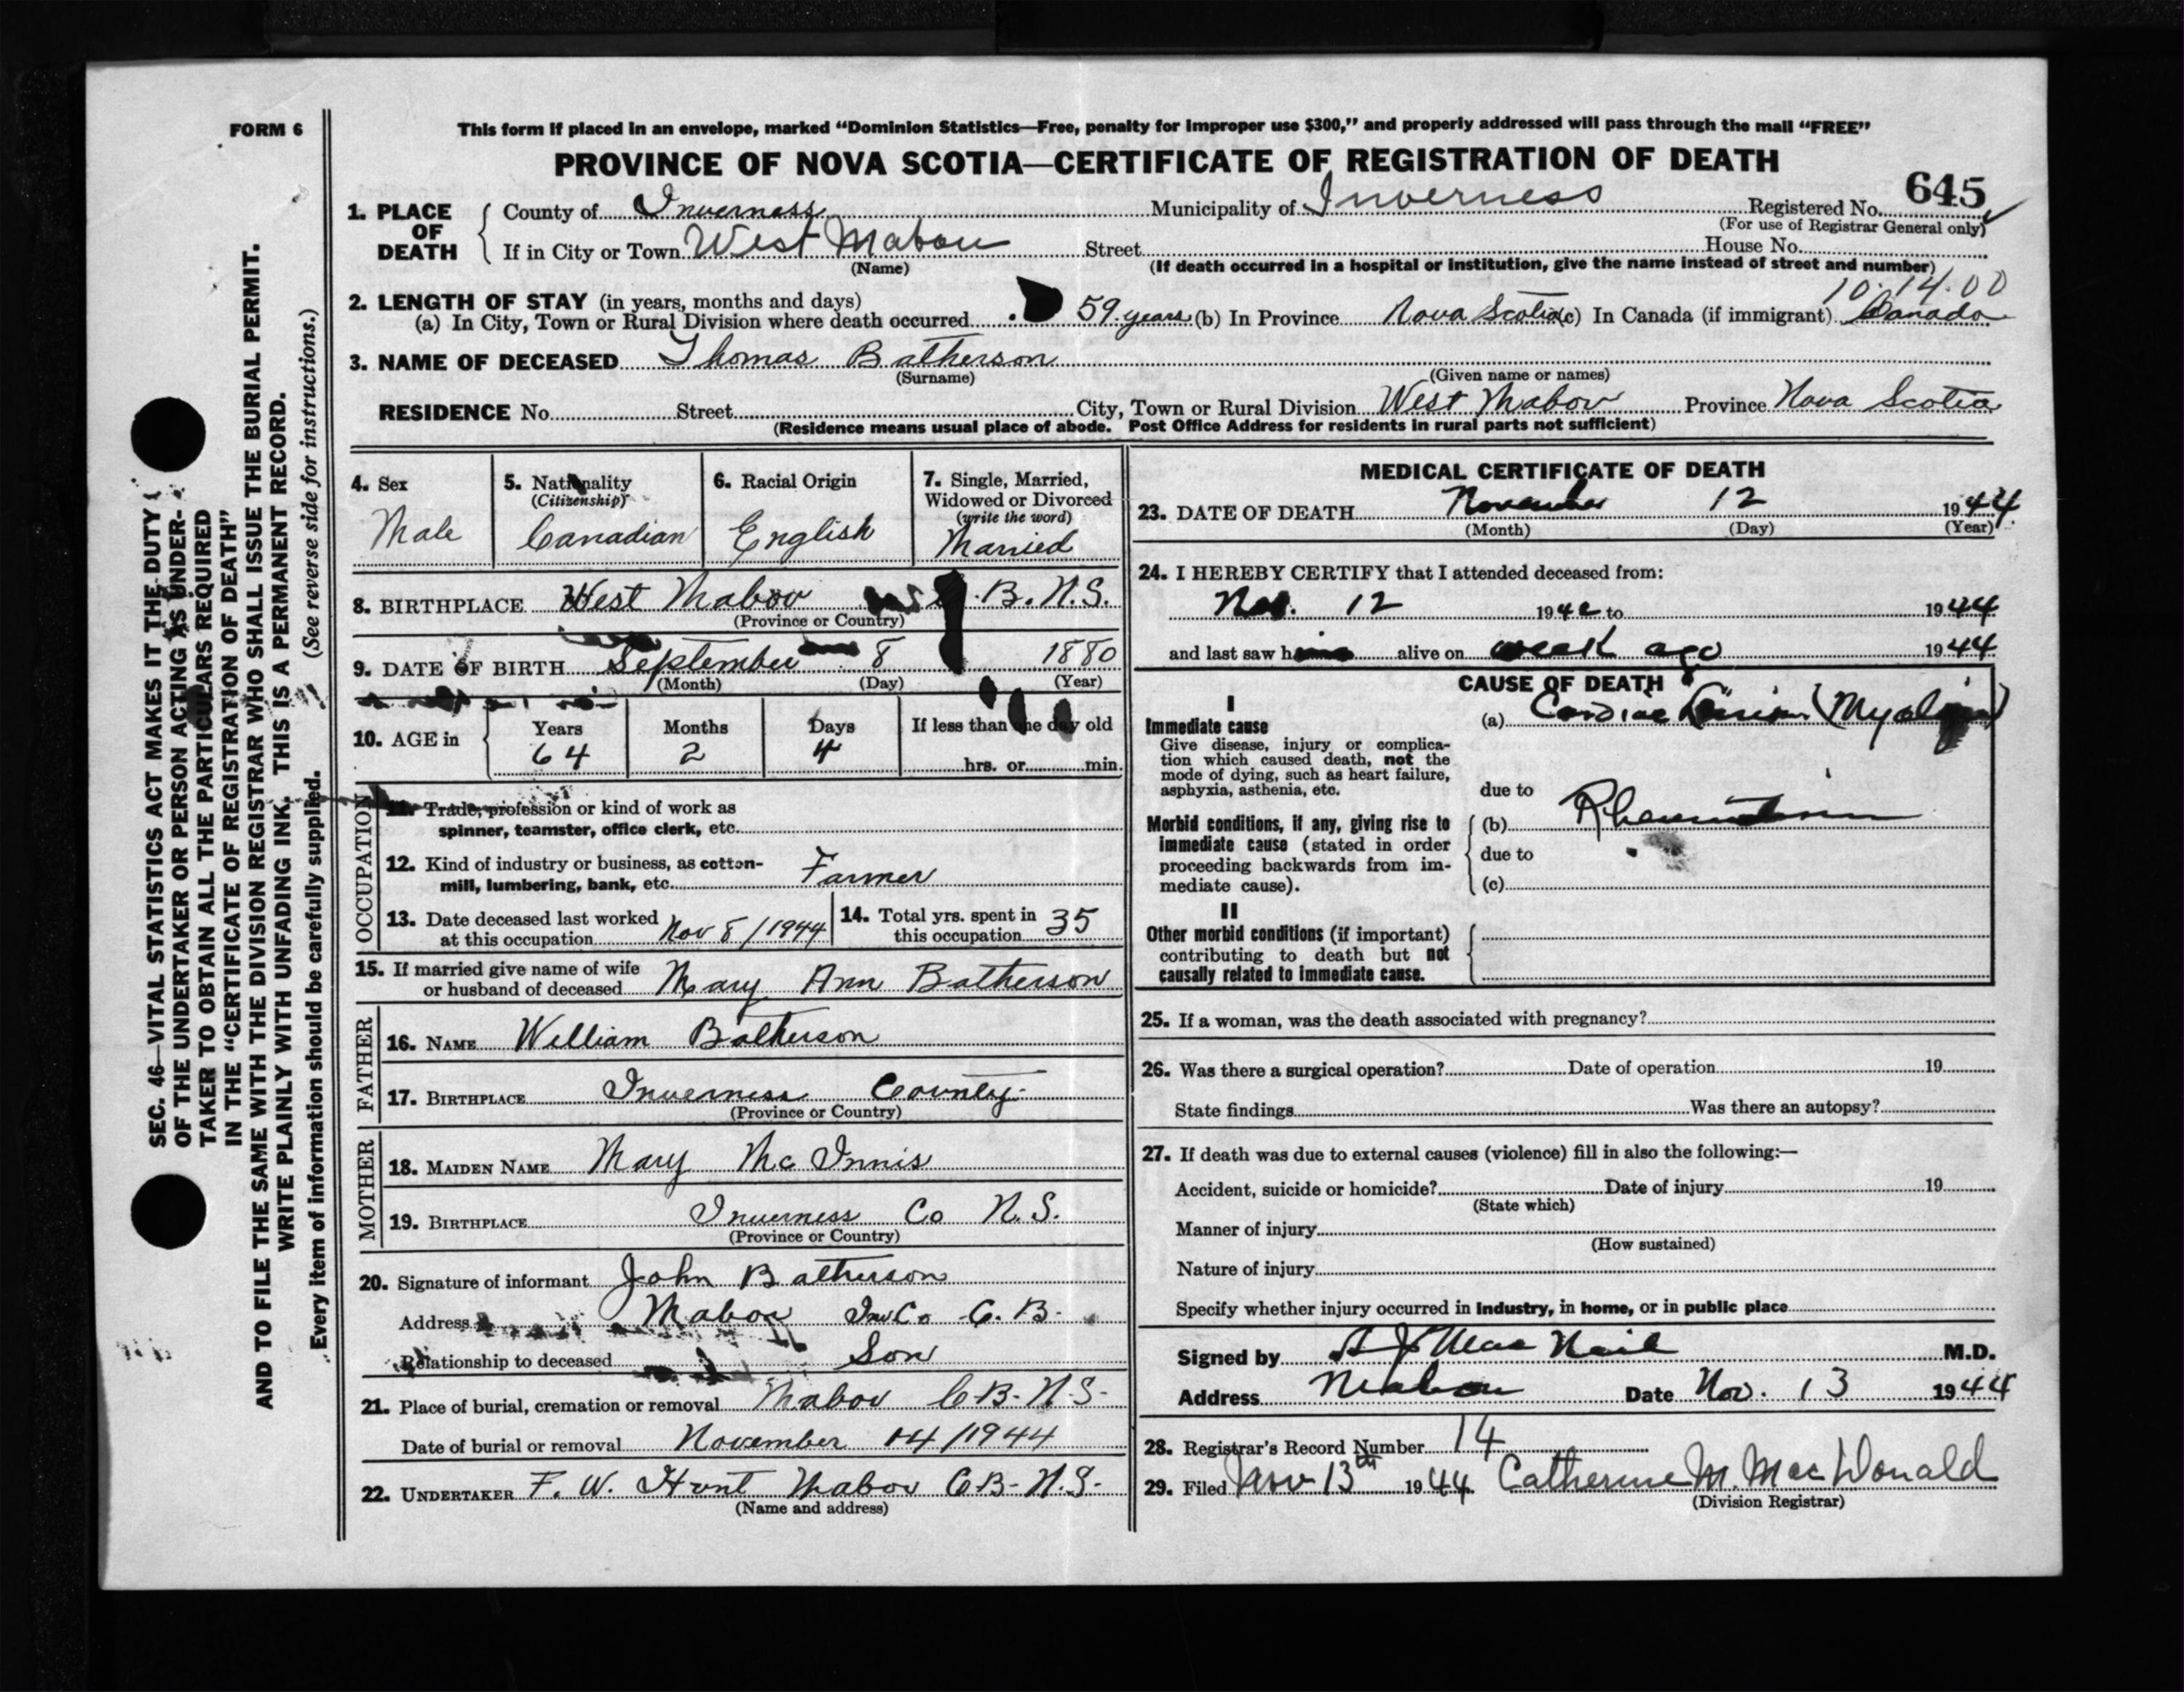 FORM 6
This form if placed in an envelope, marked “Dominion Statistics—Free, penalty for improper use $300,” and properly addressed will pass through the mail “FREE”
PROVINCE OF NOVA SCOTIA—CERTIFICATE OF REGISTRATION OF DEATH
645
1. PLACE OF DEATH
County of Inverness Municipality of Inverness Registered No.
(For use of Registrar General only)
If in City or Town West Mabou Street House No.
(Name) (If death occurred in a hospital or institution, give the name instead of street and number)
10.14.00
2. LENGTH OF STAY (in years, months and days)
(a) In City, Town or Rural Division where death occurred 59 years (b) In Province Nova Scotia (c) In Canada (if immigrant) Canada
3. NAME OF DECEASED Thomas Batherson
(Surname) (Given name or names)
RESIDENCE No. Street City, Town or Rural Division West Mabou Province Nova Scotia
(Residence means usual place of abode. Post Office Address for residents in rural parts not sufficient)
4. Sex
Male
5. Nationality
(Citizenship)
Canadian
6. Racial Origin
English
7. Single, Married,
Widowed or Divorced
(write the word)
Married
8. BIRTHPLACE West Mabou B. N.S.
(Province or Country)
9. DATE OF BIRTH September 8 1880
(Month) (Day) (Year)
10. AGE in
Years Months Days If less than one day old
64 2 4 hrs. or min.
OCCUPATION
11. Trade, profession or kind of work as
spinner, teamster, office clerk, etc.
12. Kind of industry or business, as cotton-
mill, lumbering, bank, etc. Farmer
13. Date deceased last worked
at this occupation Nov 8/1944
14. Total yrs. spent in
this occupation 35
15. If married give name of wife
or husband of deceased Mary Ann Batherson
FATHER
16. NAME William Batherson
17. BIRTHPLACE Inverness County
(Province or Country)
MOTHER
18. MAIDEN NAME Mary Mc Innis
19. BIRTHPLACE Inverness Co N.S.
(Province or Country)
20. Signature of informant John Batherson
Address Mabou Inv Co C.B.
Relationship to deceased Son
21. Place of burial, cremation or removal Mabou C.B. N.S.
Date of burial or removal November 14/1944
22. UNDERTAKER F. W. Hunt Mabou C.B. N.S.
(Name and address)
MEDICAL CERTIFICATE OF DEATH
23. DATE OF DEATH November 12 1944
(Month) (Day) (Year)
24. I HEREBY CERTIFY that I attended deceased from:
Nov. 12 194 to 1944
and last saw h alive on week ago 1944
CAUSE OF DEATH
I
Immediate cause
Give disease, injury or complica-
tion which caused death, not the
mode of dying, such as heart failure,
asphyxia, asthenia, etc.
(a) Cardiac
due to
Morbid conditions, if any, giving rise to
immediate cause (stated in order
proceeding backwards from im-
mediate cause).
(b) Rheumatism
due to
(c)
II
Other morbid conditions (if important)
contributing to death but not
causally related to immediate cause.
25. If a woman, was the death associated with pregnancy?
26. Was there a surgical operation? Date of operation 19
State findings Was there an autopsy?
27. If death was due to external causes (violence) fill in also the following:—
Accident, suicide or homicide? Date of injury 19
(State which)
Manner of injury
(How sustained)
Nature of injury
Specify whether injury occurred in industry, in home, or in public place
Signed by Mac Neil M.D.
Address Mabou Date Nov. 13 1944
28. Registrar's Record Number 14
29. Filed Nov 13th 1944 Catherine M. MacDonald
(Division Registrar)
SEC. 46—VITAL STATISTICS ACT MAKES IT THE DUTY
OF THE UNDERTAKER OR PERSON ACTING AS UNDER-
TAKER TO OBTAIN ALL THE PARTICULARS REQUIRED
IN THE “CERTIFICATE OF REGISTRATION OF DEATH”
AND TO FILE THE SAME WITH THE DIVISION REGISTRAR WHO SHALL ISSUE THE BURIAL PERMIT.
WRITE PLAINLY WITH UNFADING INK. THIS IS A PERMANENT RECORD.
Every item of information should be carefully supplied. (See reverse side for instructions.)